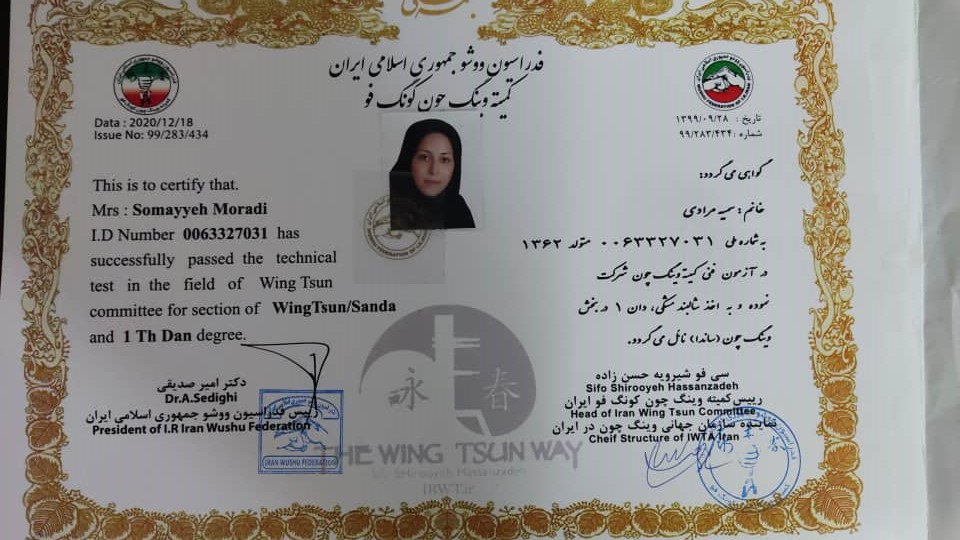 فدراسیون ووشو جمهوری اسلامی ایران
کمیته وینگ چون کونگ فو
Data : 2020/12/18
Issue No: 99/283/434
تاریخ : ۱۳۹۹/۰۹/۲۸
شماره : ۹۹/۲۸۳/۴۳۴
This is to certify that.
Mrs : Somayyeh Moradi
I.D Number 0063327031 has
successfully passed the technical
test in the field of Wing Tsun
committee for section of WingTsun/Sanda
and 1 Th Dan degree.
گواهی می گردد:
خانم : سمیه مرادی
به شماره ملی ۰۰۶۳۳۲۷۰۳۱ متولد ۱۳۶۲
در آزمون فنی کمیته وینگ چون شرکت
نموده و به اخذ شالبند مشکی، دان ۱ در بخش
وینگ چون (ساندا) نائل می گردد.
دکتر امیر صدیقی
Dr.A.Sedighi
رییس فدراسیون ووشو جمهوری اسلامی ایران
President of I.R Iran Wushu Federation
IRAN WUSHU FEDERATION
سی فو شیرویه حسن زاده
Sifo Shirooyeh Hassanzadeh
رییس کمیته وینگ چون کونگ فو ایران
Head of Iran Wing Tsun Committee
نماینده سازمان جهانی وینگ چون در ایران
Cheif Structure of IWTA Iran
永 春
THE WING TSUN WAY
Sifo Shirooyeh Hassanzadeh
IRWT.ir